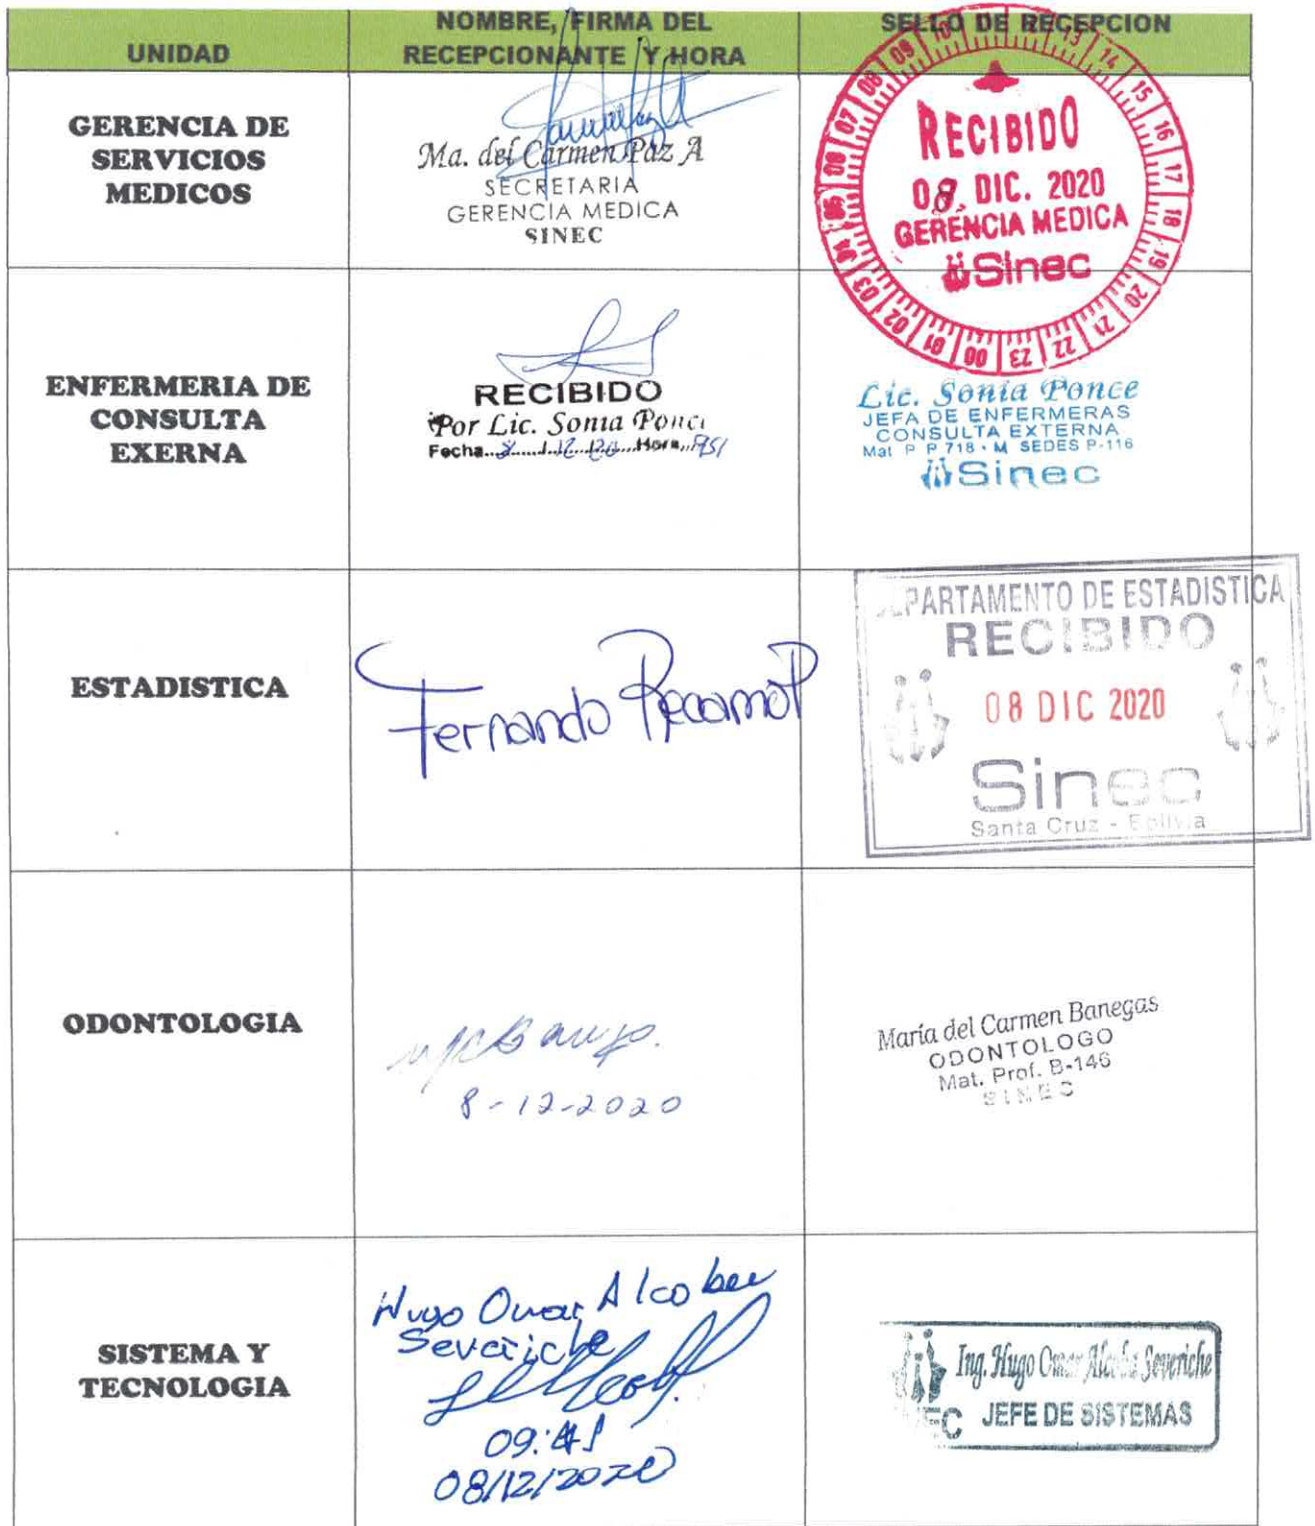 UNIDAD
NOMBRE, FIRMA DEL
RECEPCIONANTE Y HORA
SELLO DE RECEPCION
GERENCIA DE
SERVICIOS
MEDICOS
Ma. del Carmen Paz A
SECRETARIA
GERENCIA MEDICA
SINEC
09 10 13 14 15 16 17 18 19 20 21 22 23 00 01 02 03 04 05 06 07 08
RECIBIDO
08 DIC. 2020
GERENCIA MEDICA
Sinec
ENFERMERIA DE
CONSULTA
EXERNA
RECIBIDO
Por Lic. Sonia Ponce
Fecha 8 12 20 Hora
Lic. Sonia Ponce
JEFA DE ENFERMERAS
CONSULTA EXTERNA
Mat P P 718 - M SEDES P-116
Sinec
ESTADISTICA
Fernando
DEPARTAMENTO DE ESTADISTICA
RECIBIDO
08 DIC 2020
Sinec
Santa Cruz - Bolivia
ODONTOLOGIA
8-12-2020
María del Carmen Banegas
ODONTOLOGO
Mat. Prof. B-146
SINEC
SISTEMA Y
TECNOLOGIA
Hugo Omar Alcoba
Severiche
09:41
08/12/2020
Ing. Hugo Omar Alcoba Severiche
JEFE DE SISTEMAS